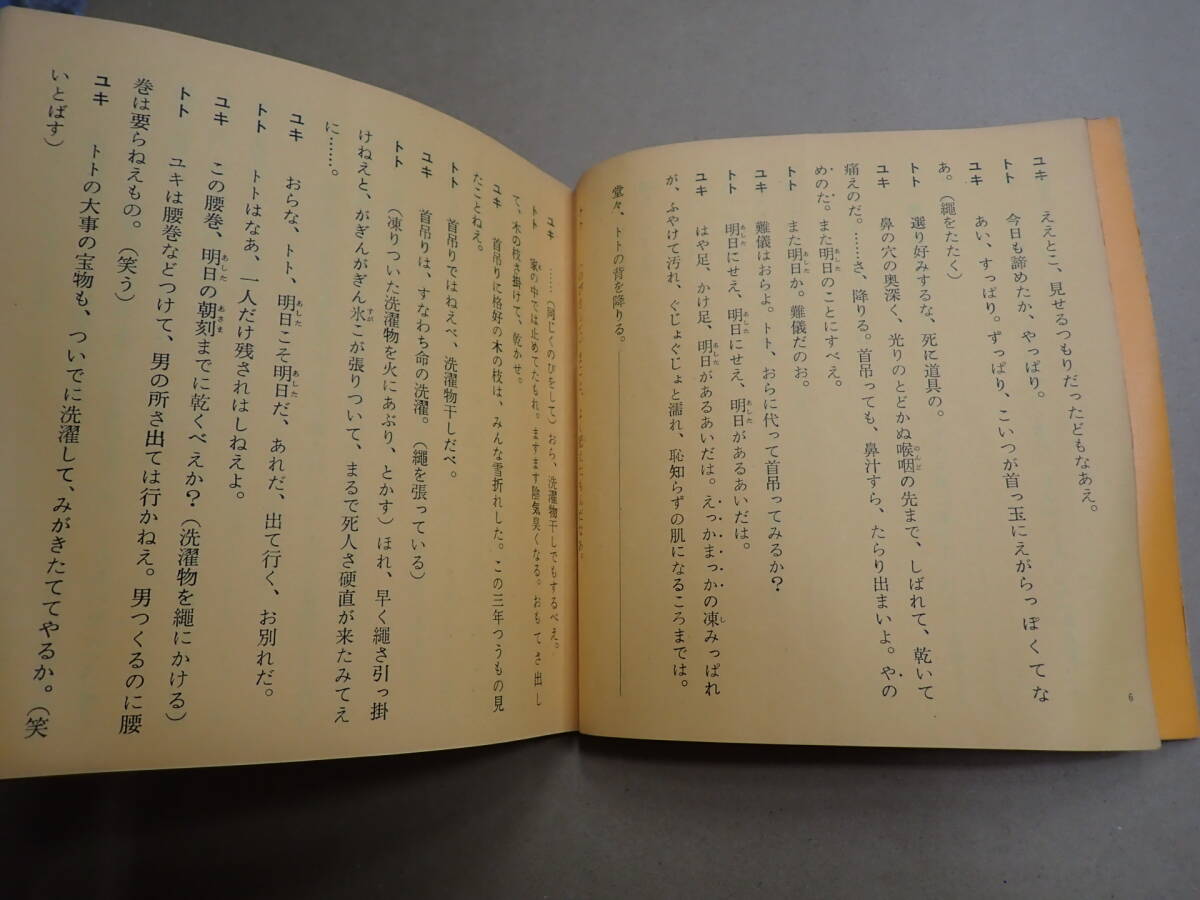 ユキ　ええとこ、見せるつもりだったどもなあえ。
トト　今日も諦めたか、やっぱり。
ユキ　あい、すっぱり。ずっぱり、こいつが首っ玉にえがらっぽくてな
あ。（縄をたたく）
トト　選り好みするな、死に道具の。
ユキ　鼻の穴の奥深く、光りのとどかぬ喉咽の先まで、しばれて、乾いて
痛えのだ。……さ、降りる。首吊っても、鼻汁すら、たらり出まいよ。やの
めのた。また明日のことにすべえ。
トト　また明日か。難儀だのお。
ユキ　難儀はおらよ。トト、おらに代って首吊ってみるか？
トト　明日にせえ、明日にせえ、明日があるあいだは。
ユキ　はや足、かけ足、明日があるあいだは。えっかまっかの凍みっぱれ
が、ふやけて汚れ、ぐじょぐじょと濡れ、恥知らずの肌になるころまでは。
堂々、トトの背を降りる。
6
ユキ　……（同じくのびをして）おら、洗濯物干しでもするべえ。
トト　家の中では止めてたもれ。ますます陰気臭くなる。おもてさ出し
て、木の枝さ掛けて、乾かせ。
ユキ　首吊りに格好の木の枝は、みんな雪折れした。この三年つうもの見
たことねえ。
トト　首吊りではねえべ、洗濯物干しだべ。
ユキ　首吊りは、すなわち命の洗濯。（縄を張っている）
トト　（凍りついた洗濯物を火にあぶり、とかす）ほれ、早く縄さ引っ掛
けねえと、がぎんがぎん氷こが張りついて、まるで死人さ硬直が来たみてえ
に……。
ユキ　おらな、トト、明日こそ明日だ、あれだ、出て行く、お別れだ。
トト　トトはなあ、一人だけ残されはしねえよ。
ユキ　この腰巻、明日の朝刻までに乾くべえか？（洗濯物を縄にかける）
トト　ユキは腰巻などつけて、男の所さ出ては行かねえ。男つくるのに腰
巻は要らねえもの。（笑う）
ユキ　トトの大事の宝物も、ついでに洗濯して、みがきたててやるか。（笑
いとばす）